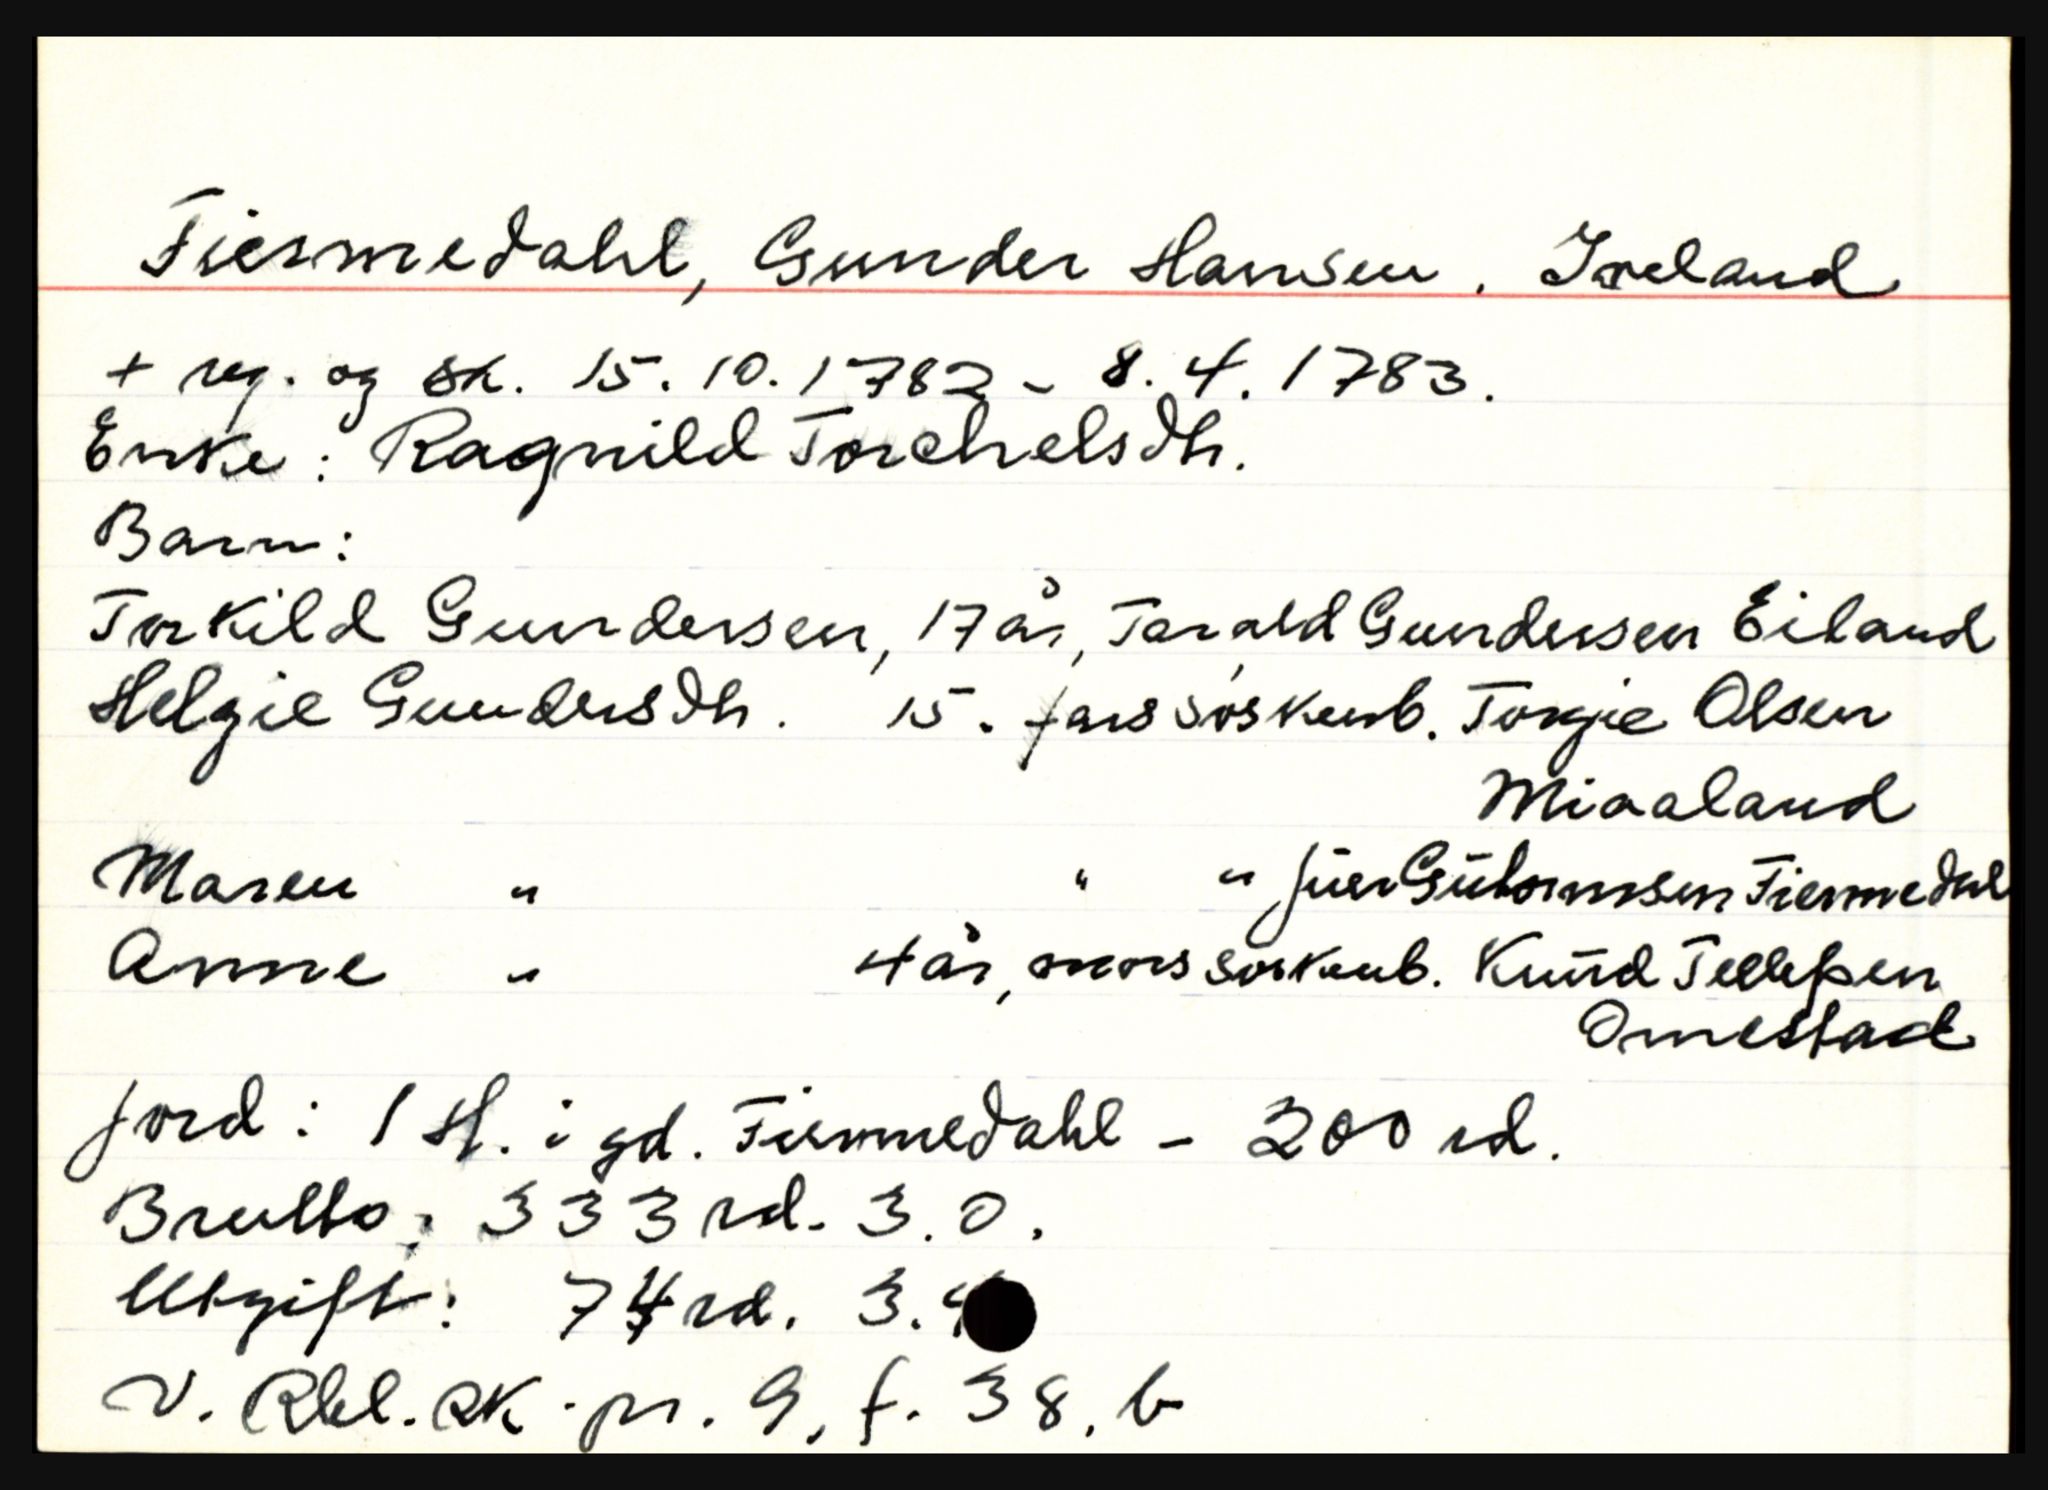 Fiermedahl, Gunder Hansen. Iveland
+ reg. og sk. 15.10.1782 - 8.4.1783.
Enke: Ragnild Torchelsdtr.
Barn:
Torkild Gundersen, 17 år, Tarald Gundersen Eiland
Helgie Gundersdtr. 15. farssøskenb. Torgie Olsen
Miaaland
Maren " " " Jver Gutormsen Fiermedal
Anne " 4 år, mors søskenb. Knud Tellefsen
Omestad
Jord: 1 H. i gd. Fiermedahl - 200 rd.
Brutto: 333 rd. 3.0.
Utgift: 74 rd. 3.
V. Rbl. sk.pr. 9, f. 38, b